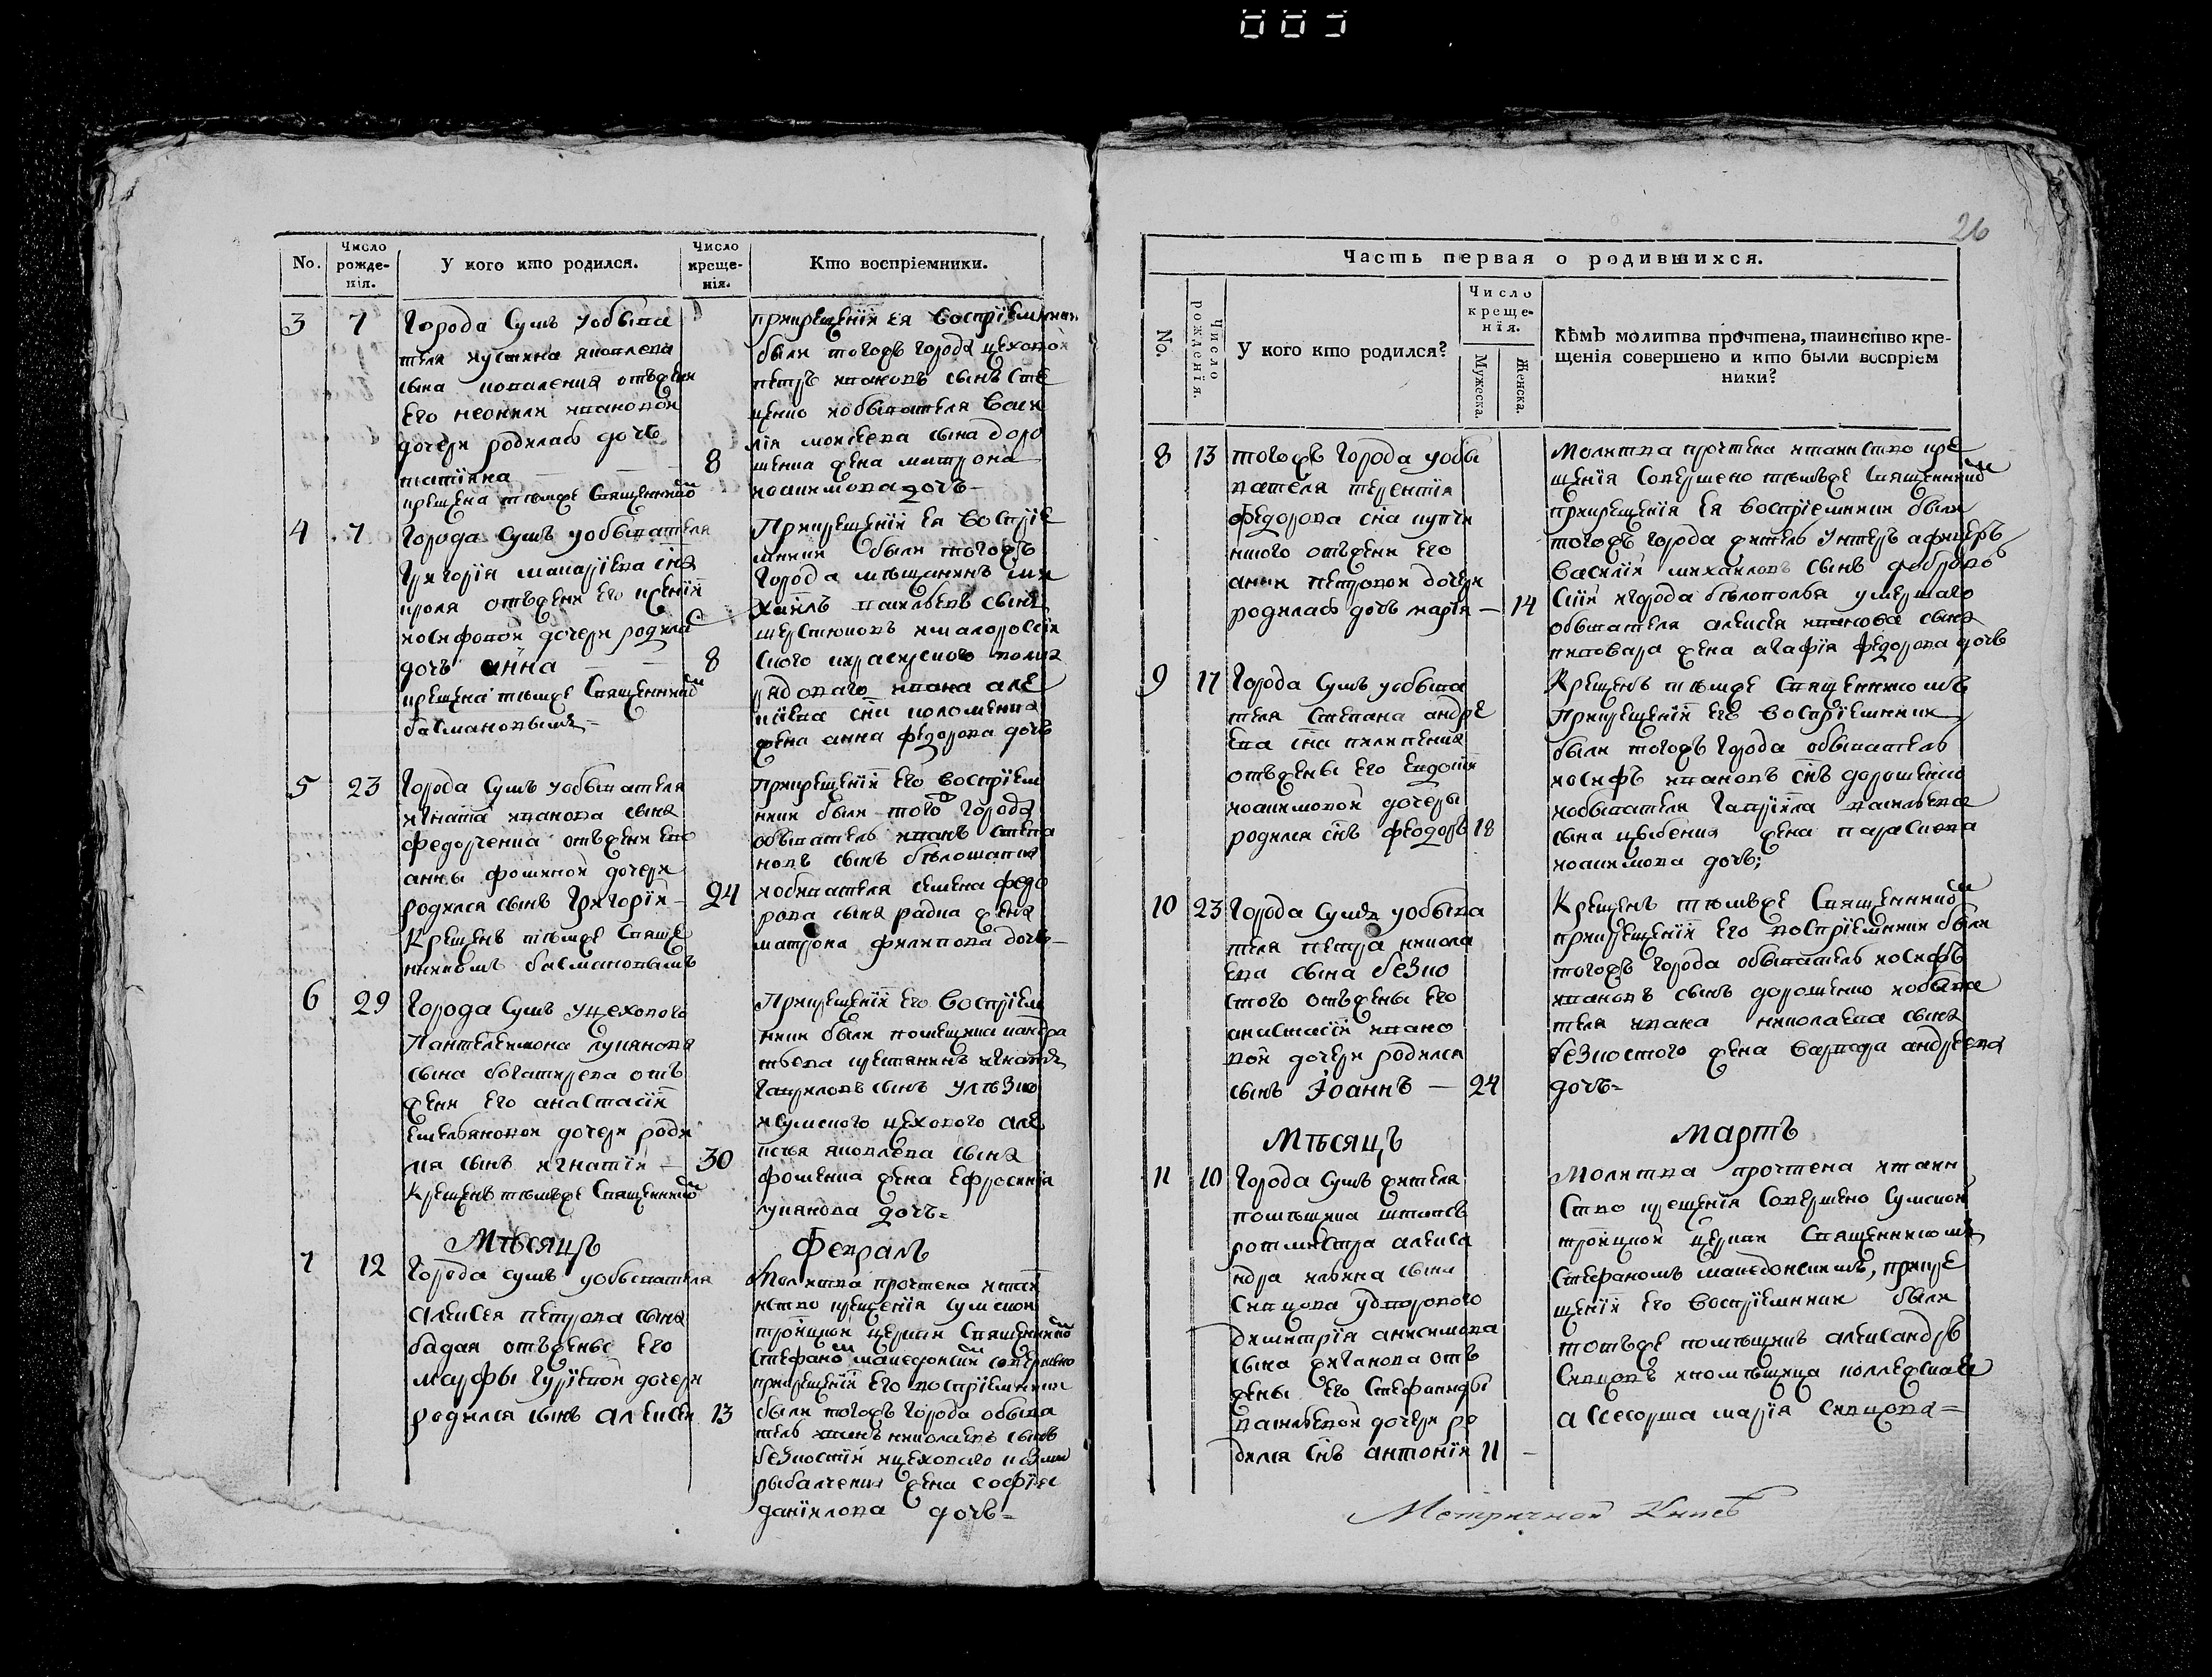 26
No.
Число рожденія.
У кого кто родился.
Число крещенія.
Кто воспріемники.
3 7 Города Сумъ уобыва
теля иустина яковлева
сына коваленка отжени
его неонили ивановой
дочери родилась дочь
татіяна — 8
крещена тѣмже Священникомъ
прикрещеніи ея воспріемникам
были тогожъ города цеховой
петръ ивановъ сынъ
ценко иобывателя васи
лія моисеева сына доро
шенка жена матрона
иоакимова дочь —
4 7 Города Сумъ уобывателя
Григорія макаріева сна
кроля отжени его
иосифовой дочери родила
дочь анна — — 8
крещена тѣмже Священникомъ
басмановымъ =
Прикрещеніи ея воспріе
мники были тогожъ
Города мѣщанинъ ми
хаилъ васильевъ сынъ
шерстюковъ ималоросій
ского полка
рядоваго ивана але
ксіева сна коломенка
жена анна федорова дочь
5 23 Города Сумъ уобывателя
игната иванова сына
федорченка отжени его
анны фоминой дочери
родился сынъ Григорій — 24
Крещенъ тѣмже Свяще
нникомъ басмановымъ
прикрещеніи его воспріем
ники были того Города
обыватель иванъ степа
новъ сынъ бѣлошапка
иобывателя семена федо
рова сына радка жена
матрона филипова дочь —
6 29 Города Сумъ уцехового
Пантелеимона лукянова
сына богатирева отъ
жени его анастасіи
емельяновой дочери роди
лся сынъ игнатій — 30
Крещенъ тѣмже Священникомъ
Прикрещеніи его воспріем
ники были помещика кандра
тьева крестянинъ игнатъ
гавриловъ сынъ
исумского цехового але
ксѣя яковлева сына
фоменка жена ефросинія
лукянова дочь =
Мѣсяцъ Февраль
7 12 Города сумъ уобывателя
Алексея петрова сына
бадая отжены его
марфы гуріевой дочери
родился сынъ алексей 13
Молитва прочтена итаи
нство крещенія сумской
троицкой церкви Священникомъ
стефаномъ македонскимъ совершено
прикрещеніи его воспріемники
были тогожъ города обыва
тель иванъ николаевъ сынъ
безкостій ицехового
рыбалченка жена софія
даніилова дочь =
Часть первая о родившихся.
No.
Число рожденія.
У кого кто родился?
Число крещенія.
Мужеска.
Женска.
Кѣмъ молитва прочтена, таинство кре-
щенія совершено и кто были воспріем
ники?
8 13 тогожъ города уобы
вателя терентія
федорова сна
отжени его
анни петровой дочери
родилась дочь марія — 14
Молитва прочтена итаинство кре
щенія Совершено тѣмже Священникомъ
прикрещенія ея воспріемники были
тогожъ города житель унтеръ афицеръ
василій михаиловъ сынъ доброво
скій игорода бѣлополья умершаго
обывателя алексея иванова сына
пивовара жена агафія федорова дочь
9 17 Города Сумъ уобыва
теля Степана андре
ева сна пилипенка
отжены его евдокіи
иоакимовой дочеры
родился снъ феодоръ 18
Крещенъ тѣмже Священникомъ
Прикрещеніи его воспріемники
были тогожъ города обыватель
иосифъ ивановъ снъ дорошенко
иобывателя гавріила васильева
сына цыбенка жена параскева
иоакимова дочь;
10 23 Города Сумъ уобыва
теля петра никола
ева сына безко
стого отжены его
анастасіи ивано
вой дочери родился
сынъ Іоаннъ — 24
Крещенъ тѣмже Священникомъ
прикрещеніи его воспріемники были
тогожъ города обыватель иосифъ
ивановъ сынъ дорошенко иобыва
теля ивана николаева сына
безкостого жена варвара андреева
дочь =
Мѣсяцъ Мартъ
11 10 Города Сумъ жителя
помѣщика штапсъ
ротмистра алекса
ндра ильина сына
Сквцова удворового
димитрія анисимова
сына жганова отъ
жены его стефаниды
васильевой дочери ро
дился снъ антоній 11 —
Молитва прочтена итаин
Ство крещенія Совершено Сумской
троицкой церкви Священникомъ
Стефаномъ македонскимъ, прикре
щеніи его воспріемники были
тотъже помѣщикъ александръ
ипомѣщица коллежская
ассесорша марія
Метричной Книги